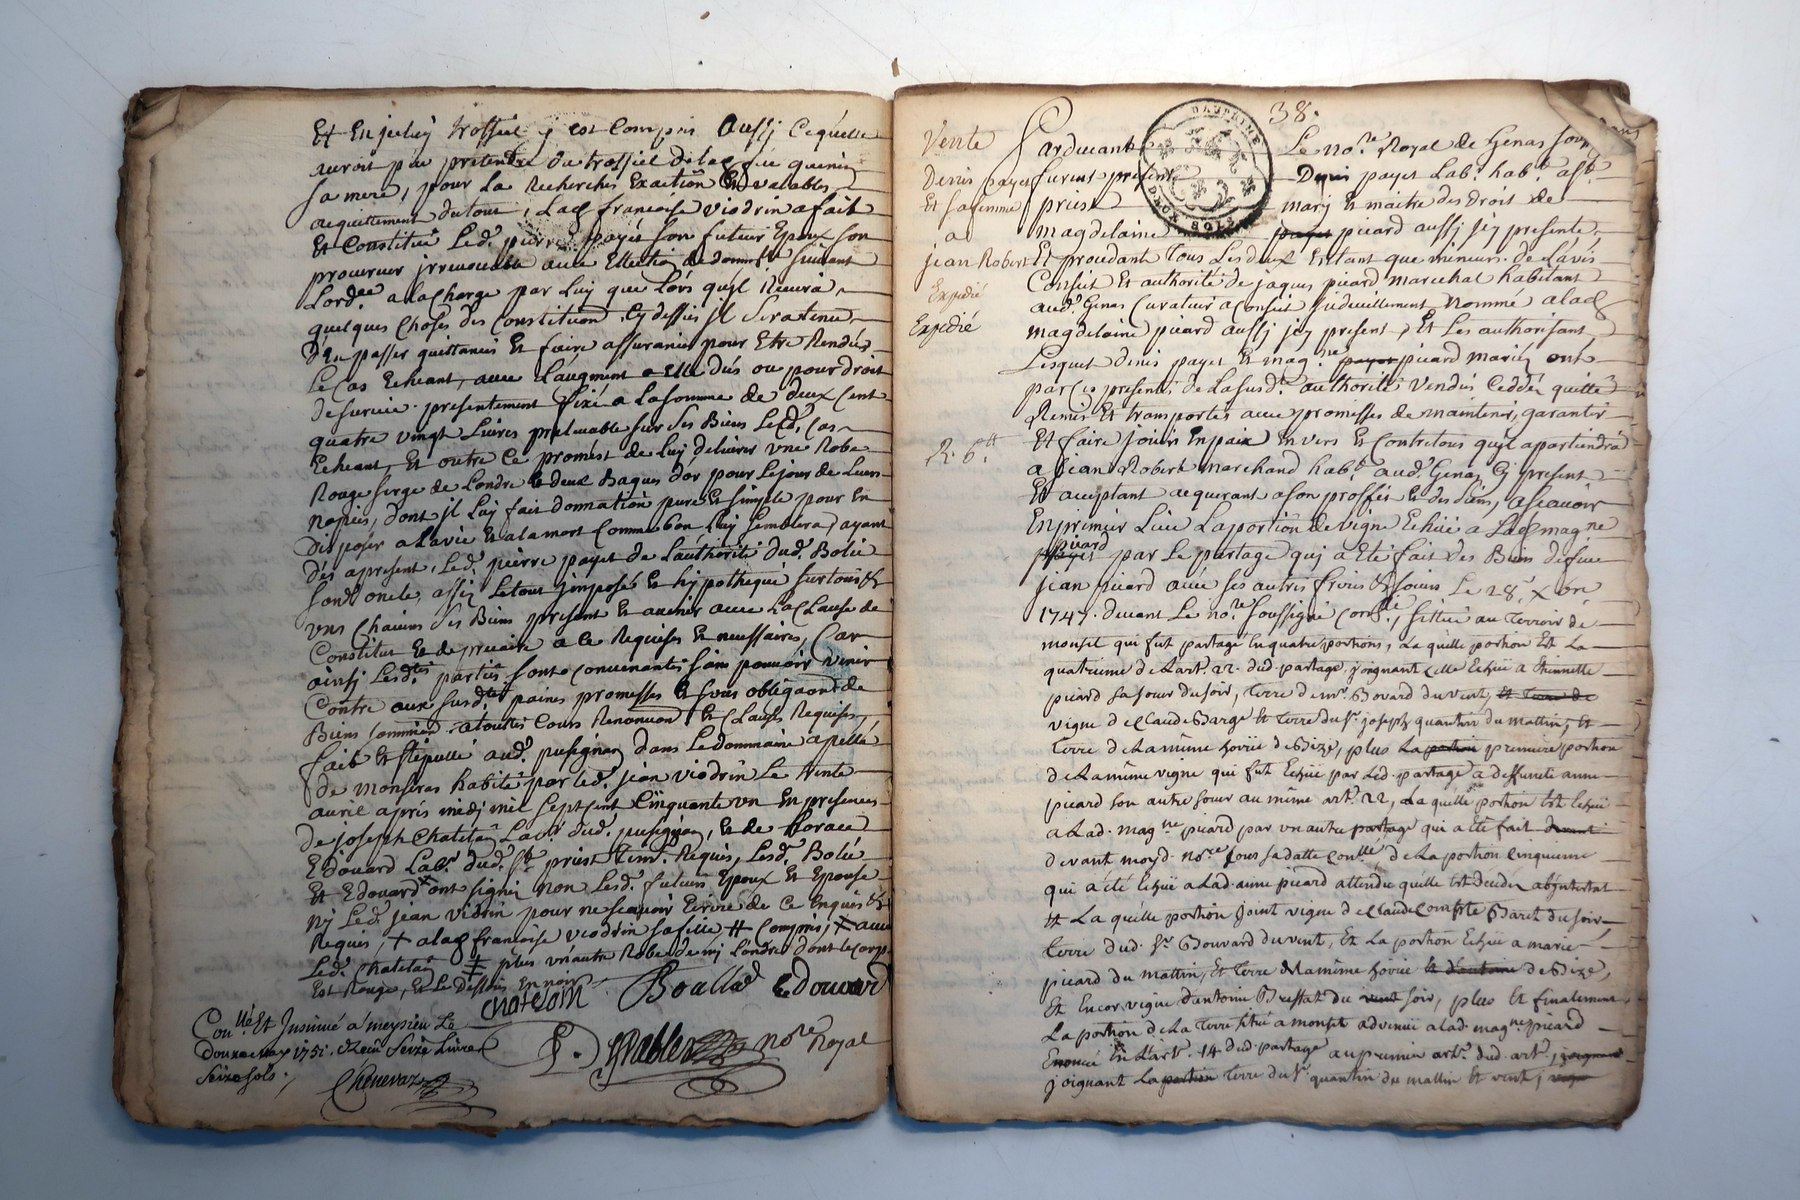 Et En jceluy trossiel y est compris Aussy Ce qu'elle
auroit peu pretendre du trossiel de lad. feüe
sa mere, pour la Recherches Exaction Et valables
acquittement dutout, Lad. francoise viodrin a fait
Et Constitué Led. pierre payet son futeur Epoux son
procureur jrrevocable avec Ellection de domicile suivant
Lord.ce a la charge par luy que Lors qu'jl Recevra
quelques choses des Constitution Cy dessus jl sera tenu
D'en passer quittances Et faire assurances pour Etre Rendües
Le Cas Echeant, avec L'augment a Elle dûs ou pour droit
de survie presentement fixé a la somme de deux Cent
quatre vingt Livres prelevable sur ses Biens Led. Cas
Echeant, Et outre Ce promest de luy delivrer vne Robe
Rouge serge de Londre & deux Bagues dor pour Le jour de Leurs
nopces, dont jl luy fait donnation pure Et simple pour En
disposer a la vie Et a la mort Comme bon luy semblera, ayant
dés apresent, Led. pierre payet de l'authorité dud. Bolié
son oncle, assis Letout jmposés Et hypothequé sur tous &
vns Chacuns ses Biens present Et avenir avec La Clause de
Constitut Et de precaire a ce Requises Et necessaires, Car
ainsy Lesd. parties sont Convenantes sans pouvoir venir
Contre aux susd. paines promesses & sous obligaon de
Biens soumission a touttes Cours Renonuon Et Clauses Requises,
fait Et stipullé aud. pusignan dans Le dommaine apellé
de monseras habité par led. jean viodrin Le vinte
avril aprés midj mil sept cent Cinquante vn En presences
de joseph Chatelain Lab.r dud. pusignan, Et de horace
Edouard Lab.r dud. S.t priest tem. Requis, Lesd. Bolié
Et Edouard ont signé non Lesd. futeurs Epoux Et Epouse
Ny Led. jean viodrin pour ne scavoir Ecrire de ce Enquis &
Requis, + a lad. francoise viodrin sa fille # Compris, × avec
Led. Chatelain ‡ plus vn autre Robe demy Londre dont le corp
Est Rouge, Et Le Dessous En noir
chatelain Boullié edouard
Con.llé Et Jnsinué a meysieu Le
douze may 1751. Receu Seize Livres
Seize sols.
Chenevaz
No.re Royal
38.
DAUPHINE
DEUX SOLS
Vente
Denis payet
Et sa femme
a
jean Robert
Expedié
Expedié
R. 6.tt
Pardevant Le no.re Royal de Genas sous
furent present Denis payet Lab.r hab.t a S.t
priest mary Et maitre des droit de
magdelaine payet picard aussj jcy presente,
Et procedant tous Les deux Entant que mineurs de L'avis
Conseit Et authorité de jaques picard marechal habitant
aud. Genas Curateur a Conseit judiciellement nommé a lad.
magdelaine picard aussj jcy present, Et Les authorisant
Lesquel denis payet Et mag.ne payet picard mariés ont
par Ces presentes de La susd. authorité vendus Ceddé, quitté
Remis Et transportés avec promesses de maintenir, garantir
Et faire jouir En paix En vers Et Contre tous qu'jl apartiendra
a Jean Robert marchand hab.t aud. Genas Cy present
Et acceptant acquerant a son proffit Et des siens, a scavoir
En primier Lieu La portion de vigne Echüe a Lad. mag.ne
payet picard par Le partage quj a Eté fait des Biens de feu
jean picard avec ses autres freres & soeurs Le 28. Xbre
1747. devant Le no.re soussigné Con.llé, sittué au terroir de
monset qui fut partagé En quatre portions, La quelle portion Est La
quatrieme de L'art. 22. dud. partage, joignant celle Echüe a Etiennette
picard sa soeur du soir, terre de m.r Bovard du vent, et terre de
vigne de Claude Barge Et terre du S.r joseph quantin du mattin, Et
terre de La même hoirie de Bize, plus La portion premiere portion
de La même vigne qui fut Echüe par Led. partage a deffunte anne
picard son autre soeur au même art. 22, La quelle portion Est Echüe
a Lad. mag.ne picard par vn autre partage qui a Eté fait devant
devant moyd. no.re sous sa datte Con.llé, de La portion Cinquieme
qui a été Echüe a Lad. anne picard attendu qu'elle Est Decedée abjntestat
Et La quelle portion Joint vigne de Claude Comte Baret du soir
terre dud. S.r Bouvard du vent, Et La portion Echüe a marie
picard du mattin, Et terre de La même hoirie Et d'antoine de Bize,
Et Encor vigne d'antoine Bressat du vent soir, plus Et finalement
La portion de La terre sitüé a monset advenüe a lad. mag.ne picard
Enoncé En L'art. 14. dud. partage au premier art. dud. art., joignant
joignant La portion terre du S.r quantin du mattin Et vent,